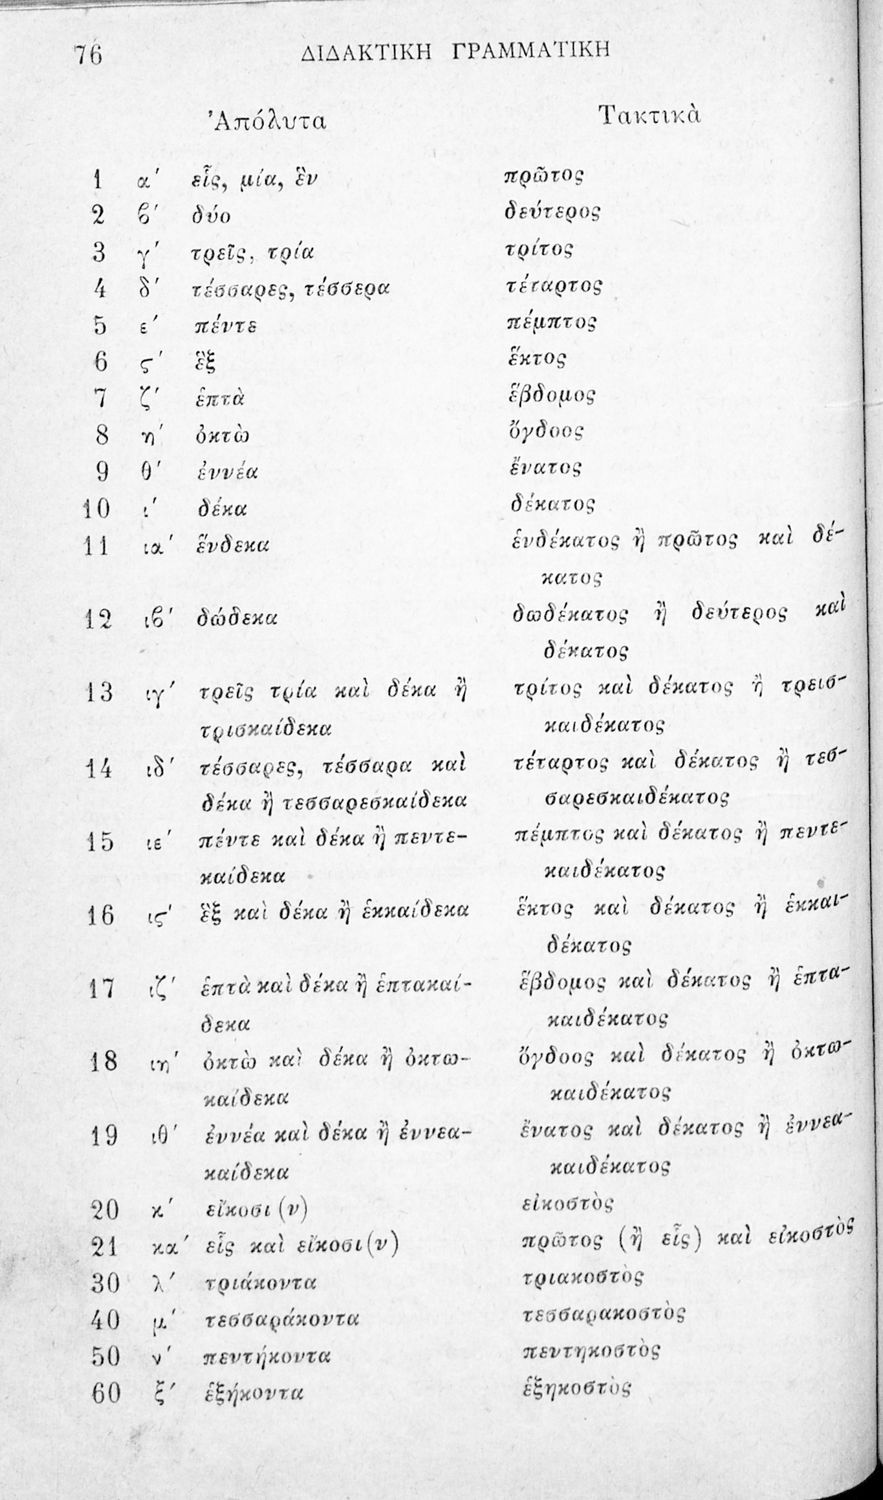 76 ΔΙΔΑΚΤΙΚΗ ΓΡΑΜΜΑΤΙΚΗ
Ἀπόλυτα Τακτικὰ
1 α΄ εἷς, μία, ἓν πρῶτος
2 ϐ΄ δύο δεύτερος
3 γ΄ τρεῖς, τρία τρίτος
4 δ΄ τέσσαρες, τέσσερα τέταρτος
5 ε΄ πέντε πέμπτος
6 ς΄ ἓξ ἕκτος
7 ζ΄ ἑπτὰ ἕβδομος
8 η΄ ὀκτὼ ὄγδοος
9 θ΄ ἐννέα ἔνατος
10 ι΄ δέκα δέκατος
11 ια΄ ἕνδεκα ἑνδέκατος ἢ πρῶτος καὶ δέ-
κατος
12 ιϐ΄ δώδεκα δωδέκατος ἢ δεύτερος καὶ
δέκατος
13 ιγ΄ τρεῖς τρία καὶ δέκα ἢ τρίτος καὶ δέκατος ἢ τρεισ-
τρισκαίδεκα καιδέκατος
14 ιδ΄ τέσσαρες, τέσσαρα καὶ τέταρτος καὶ δέκατος ἢ τεσ-
δέκα ἢ τεσσαρεσκαίδεκα σαρεσκαιδέκατος
15 ιε΄ πέντε καὶ δέκα ἢ πεντε- πέμπτος καὶ δέκατος ἢ πεντε-
καίδεκα καιδέκατος
16 ις΄ ἓξ καὶ δέκα ἢ ἑκκαίδεκα ἕκτος καὶ δέκατος ἢ ἑκκαι-
δέκατος
17 ιζ΄ ἑπτὰ καὶ δέκα ἢ ἑπτακαί- ἕβδομος καὶ δέκατος ἢ ἑπτα-
δεκα καιδέκατος
18 ιη΄ ὀκτὼ καὶ δέκα ἢ ὀκτω- ὄγδοος καὶ δέκατος ἢ ὀκτω-
καίδεκα καιδέκατος
19 ιθ΄ ἐννέα καὶ δέκα ἢ ἐννεα- ἔνατος καὶ δέκατος ἢ ἐννεα-
καίδεκα καιδέκατος
20 κ΄ εἴκοσι (ν) εἰκοστὸς
21 κα΄ εἷς καὶ εἴκοσι(ν) πρῶτος (ἢ εἷς) καὶ εἰκοστὸς
30 λ΄ τριάκοντα τριακοστὸς
40 μ΄ τεσσαράκοντα τεσσαρακοστὸς
50 ν΄ πεντήκοντα πεντηκοστὸς
60 ξ΄ ἑξήκοντα ἑξηκοστὸς